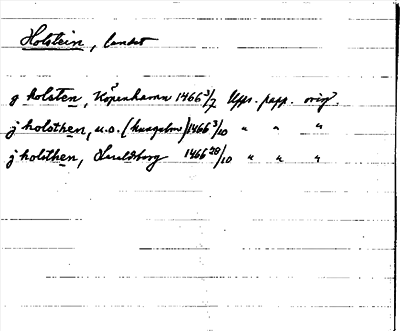 Holstein, landet
g holsten, Köpenhamn 1466 3/7 Upps. papp. orig.
j holsthen, u.o. (husgalmn) 1466 3/10 " " "
j holsthen, Haraldsborg 1466 28/10 " " "